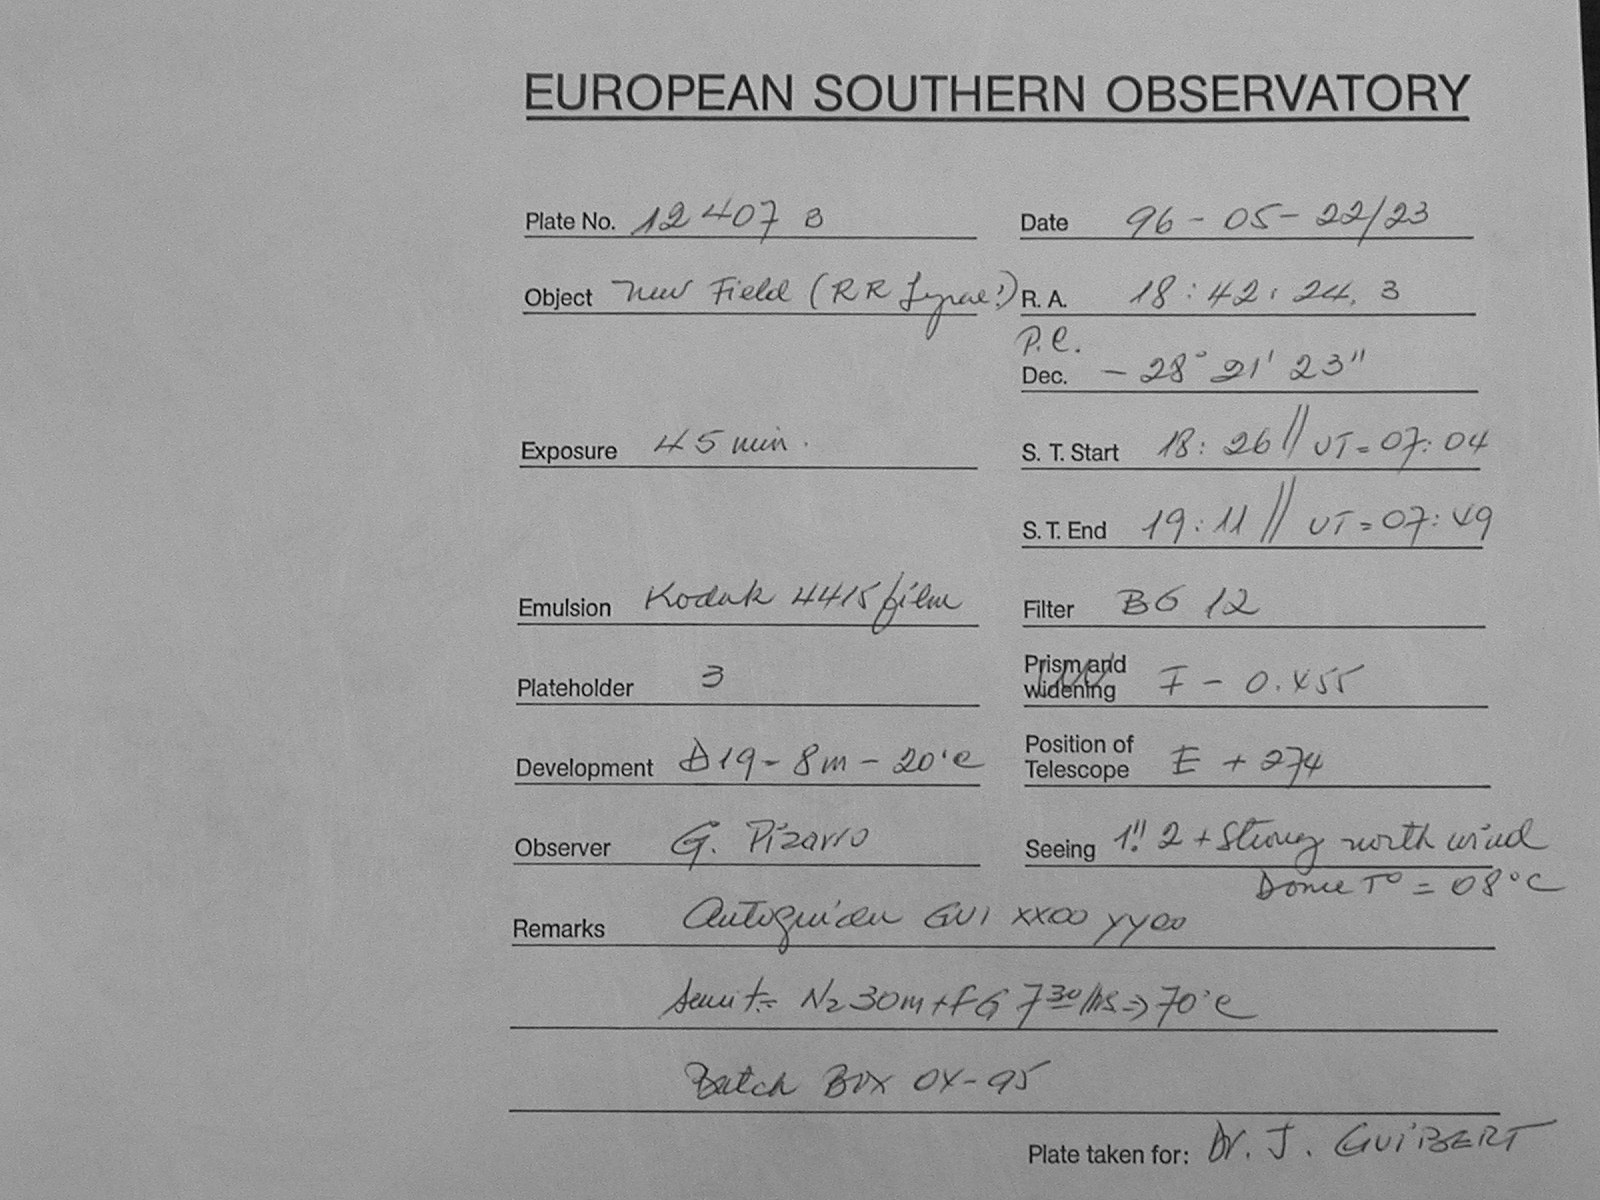 EUROPEAN SOUTHERN OBSERVATORY
Plate No. 12407 B Date 96-05-22/23
Object New Field (RR Lyrae!) R. A. 18:42:24.3
P.C.
Dec. -28° 21' 23"
Exposure 45 min. S. T. Start 18:26 // UT=07:04
S. T. End 19:11 // UT=07:49
Emulsion Kodak 4415 film Filter BG 12
Plateholder 3 Prism and widening F - 0.455
Development D19 - 8m - 20°C Position of Telescope E + 274
Observer G. Pizarro Seeing 1".2 + Strong north wind
Dome T° = 08°C
Remarks GUI XX00 YY00
N2 30m + FG 7 30/hs => 70°C
Batch Box 04-95
Plate taken for: Dr. J. GUIBERT